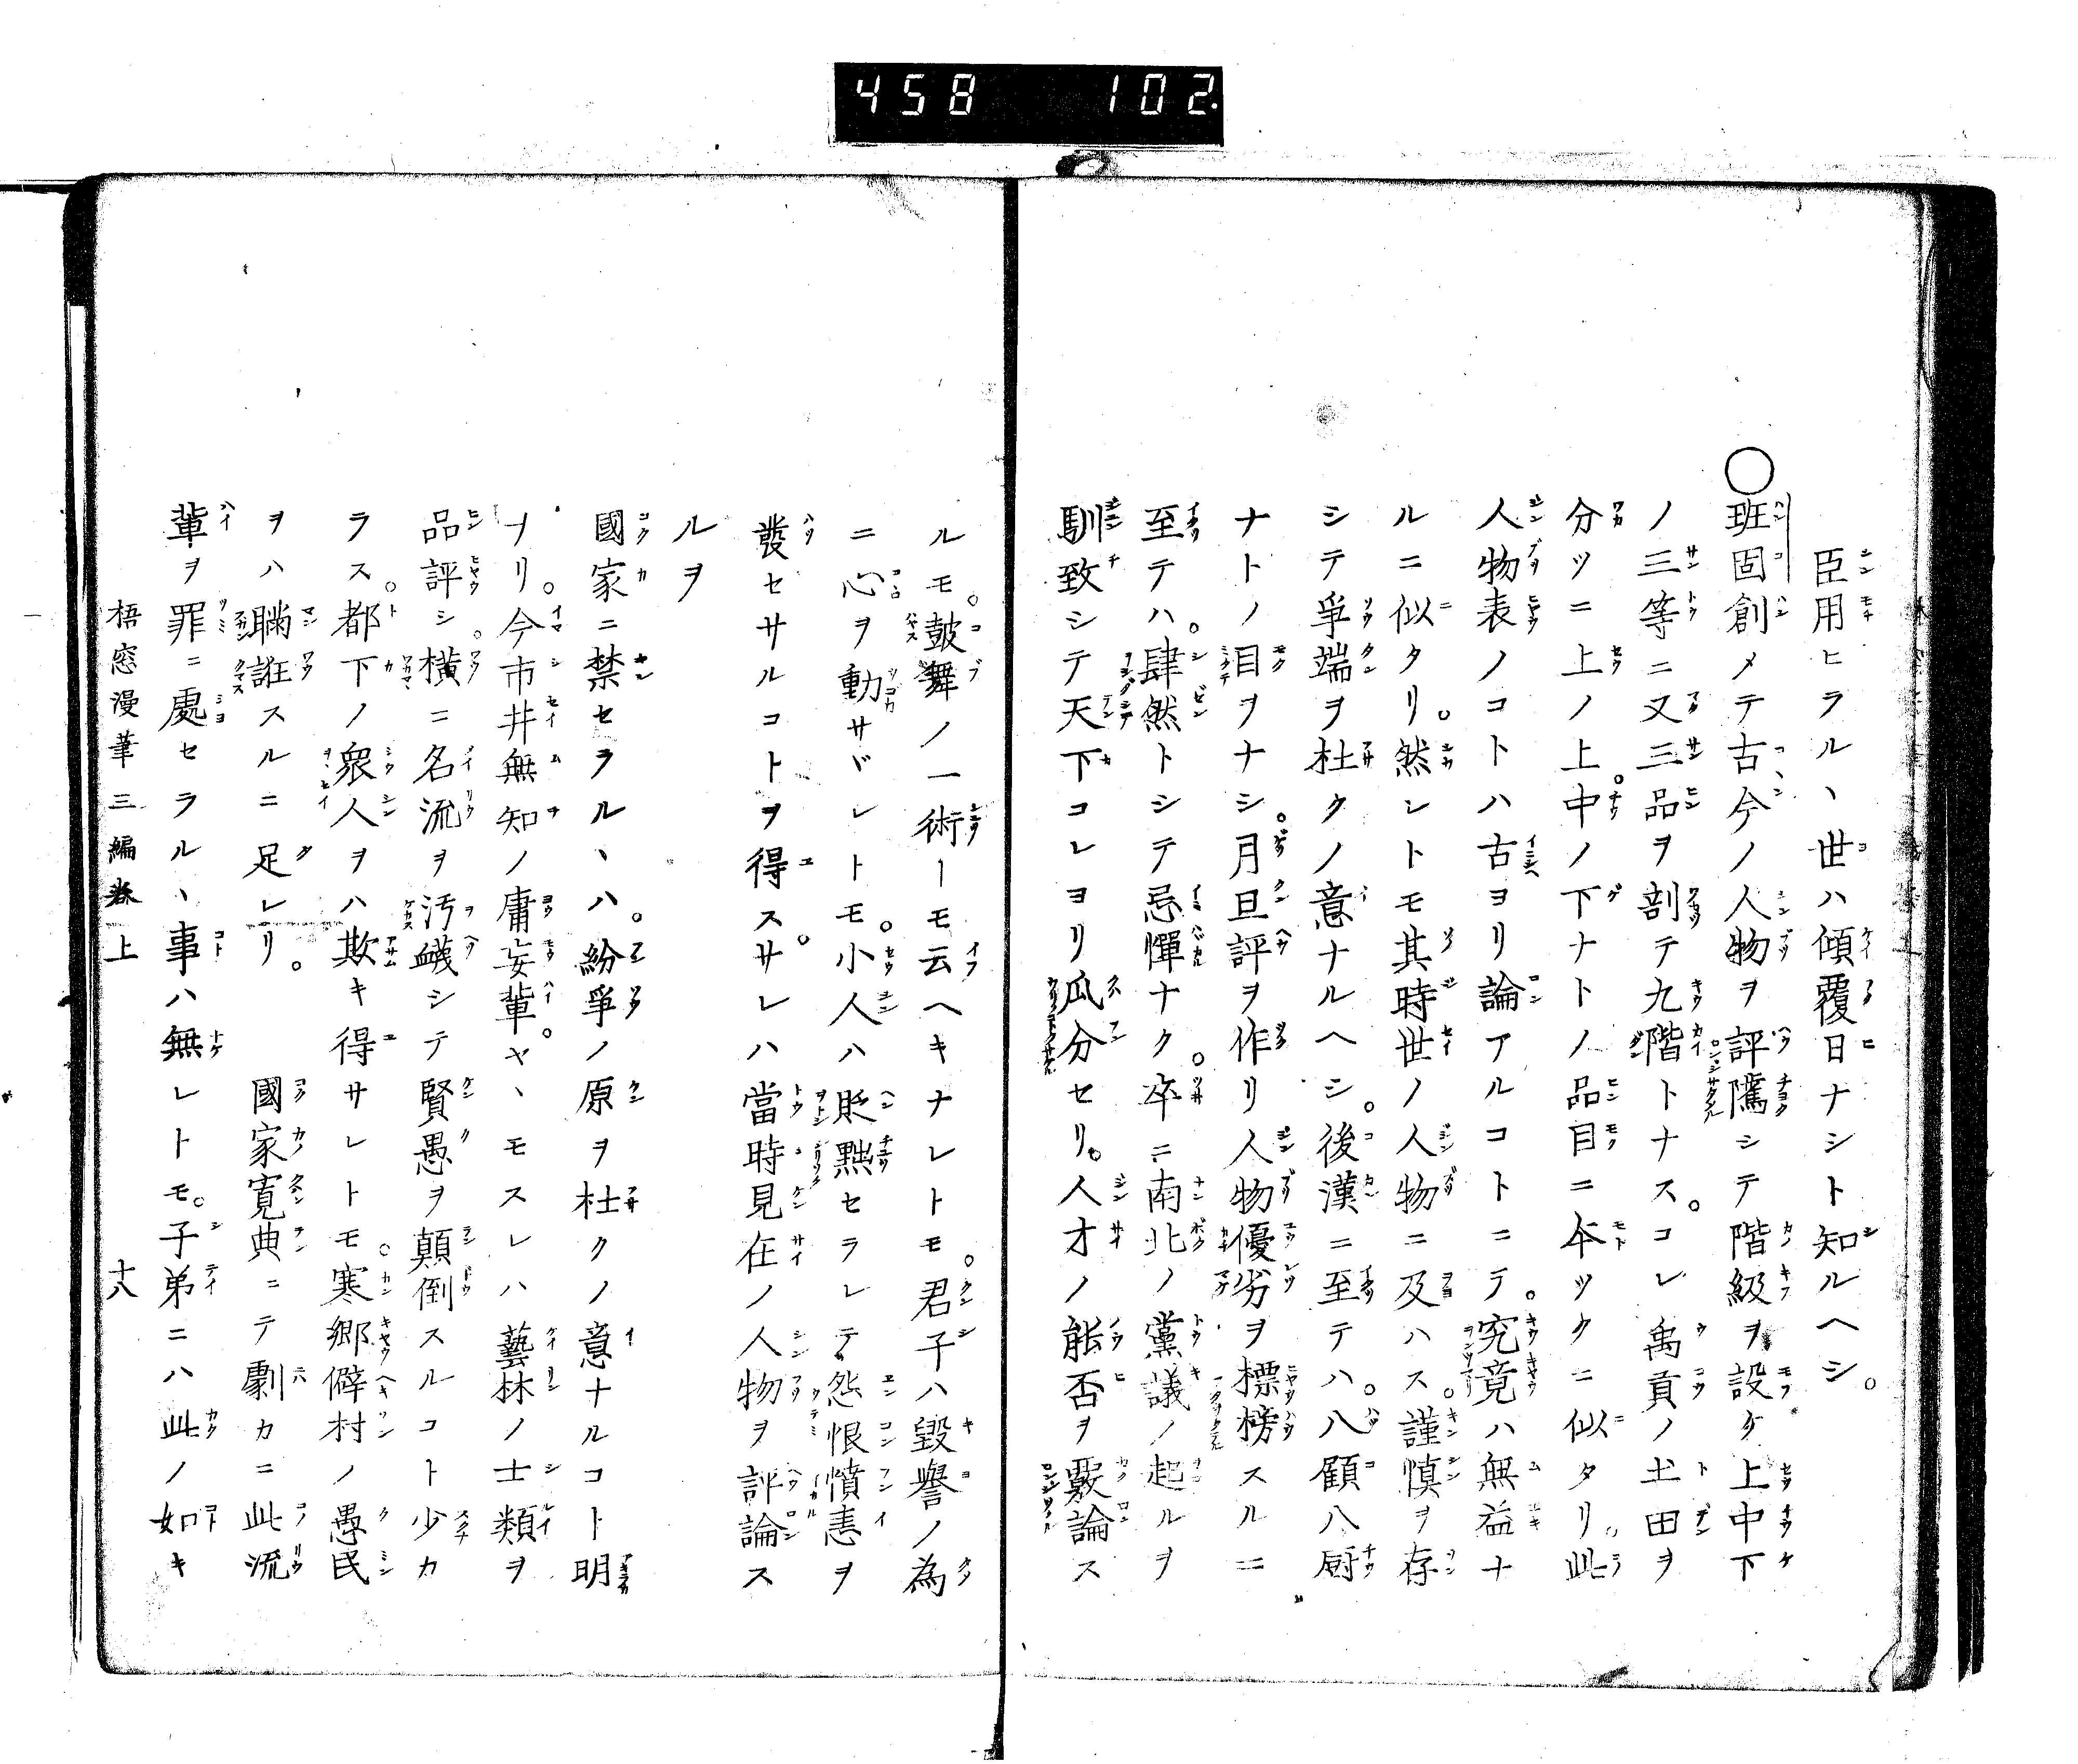 458 102
臣用ヒラルヽ世ハ傾覆日ナシト知ルヘシ。
○班固創メテ古今ノ人物ヲ評隲シテ階級ヲ設ケ上中下
ノ三等ニ又三品ヲ剖テ九階トナス。コレ禹貢ノ土田ヲ
分ツニ上ノ上。中ノ下ナトノ品目ニ本ツクニ似タリ。此
人物表ノコトハ古ヨリ論アルコトニテ。究竟ハ無益ナ
ルニ似タリ。然レトモ其時世ノ人物ニ及ハス。謹慎ヲ存
シテ爭端ヲ杜クノ意ナルヘシ。後漢ニ至テハ。八顧八厨
ナトノ目ヲナシ。月旦評ヲ作リ人物優劣ヲ標榜スルニ
至テハ。肆然トシテ忌憚ナク。卒ニ南北ノ黨議ノ起ルヲ
馴致シテ天下コレヨリ瓜分セリ。人才ノ能否ヲ覈論ス
ルモ。鼓舞ノ一術トモ云ヘキナレトモ。君子ハ毀譽ノ為
ニ心ヲ動サヾレトモ。小人ハ貶黜セラレテ怨恨憤恚ヲ
發セサルコトヲ得ス。サレハ當時見在ノ人物ヲ評論ス
ルヲ
國家ニ禁セラルヽハ。紛爭ノ原ヲ杜クノ意ナルコト明
ナリ。今市井無知ノ庸妄輩。ヤヽモスレハ藝林ノ士類ヲ
品評シ。横ニ名流ヲ汚衊シテ賢愚ヲ顛倒スルコト少カ
ラス。都下ノ衆人ヲハ欺キ得サレトモ。寒郷僻村ノ愚民
ヲハ瞞誑スルニ足レリ。國家寛典ニテ劇カニ此流
輩ヲ罪ニ處セラルヽ事ハ無レトモ。子弟ニハ此ノ如キ
梧窓漫筆三編巻上 十八